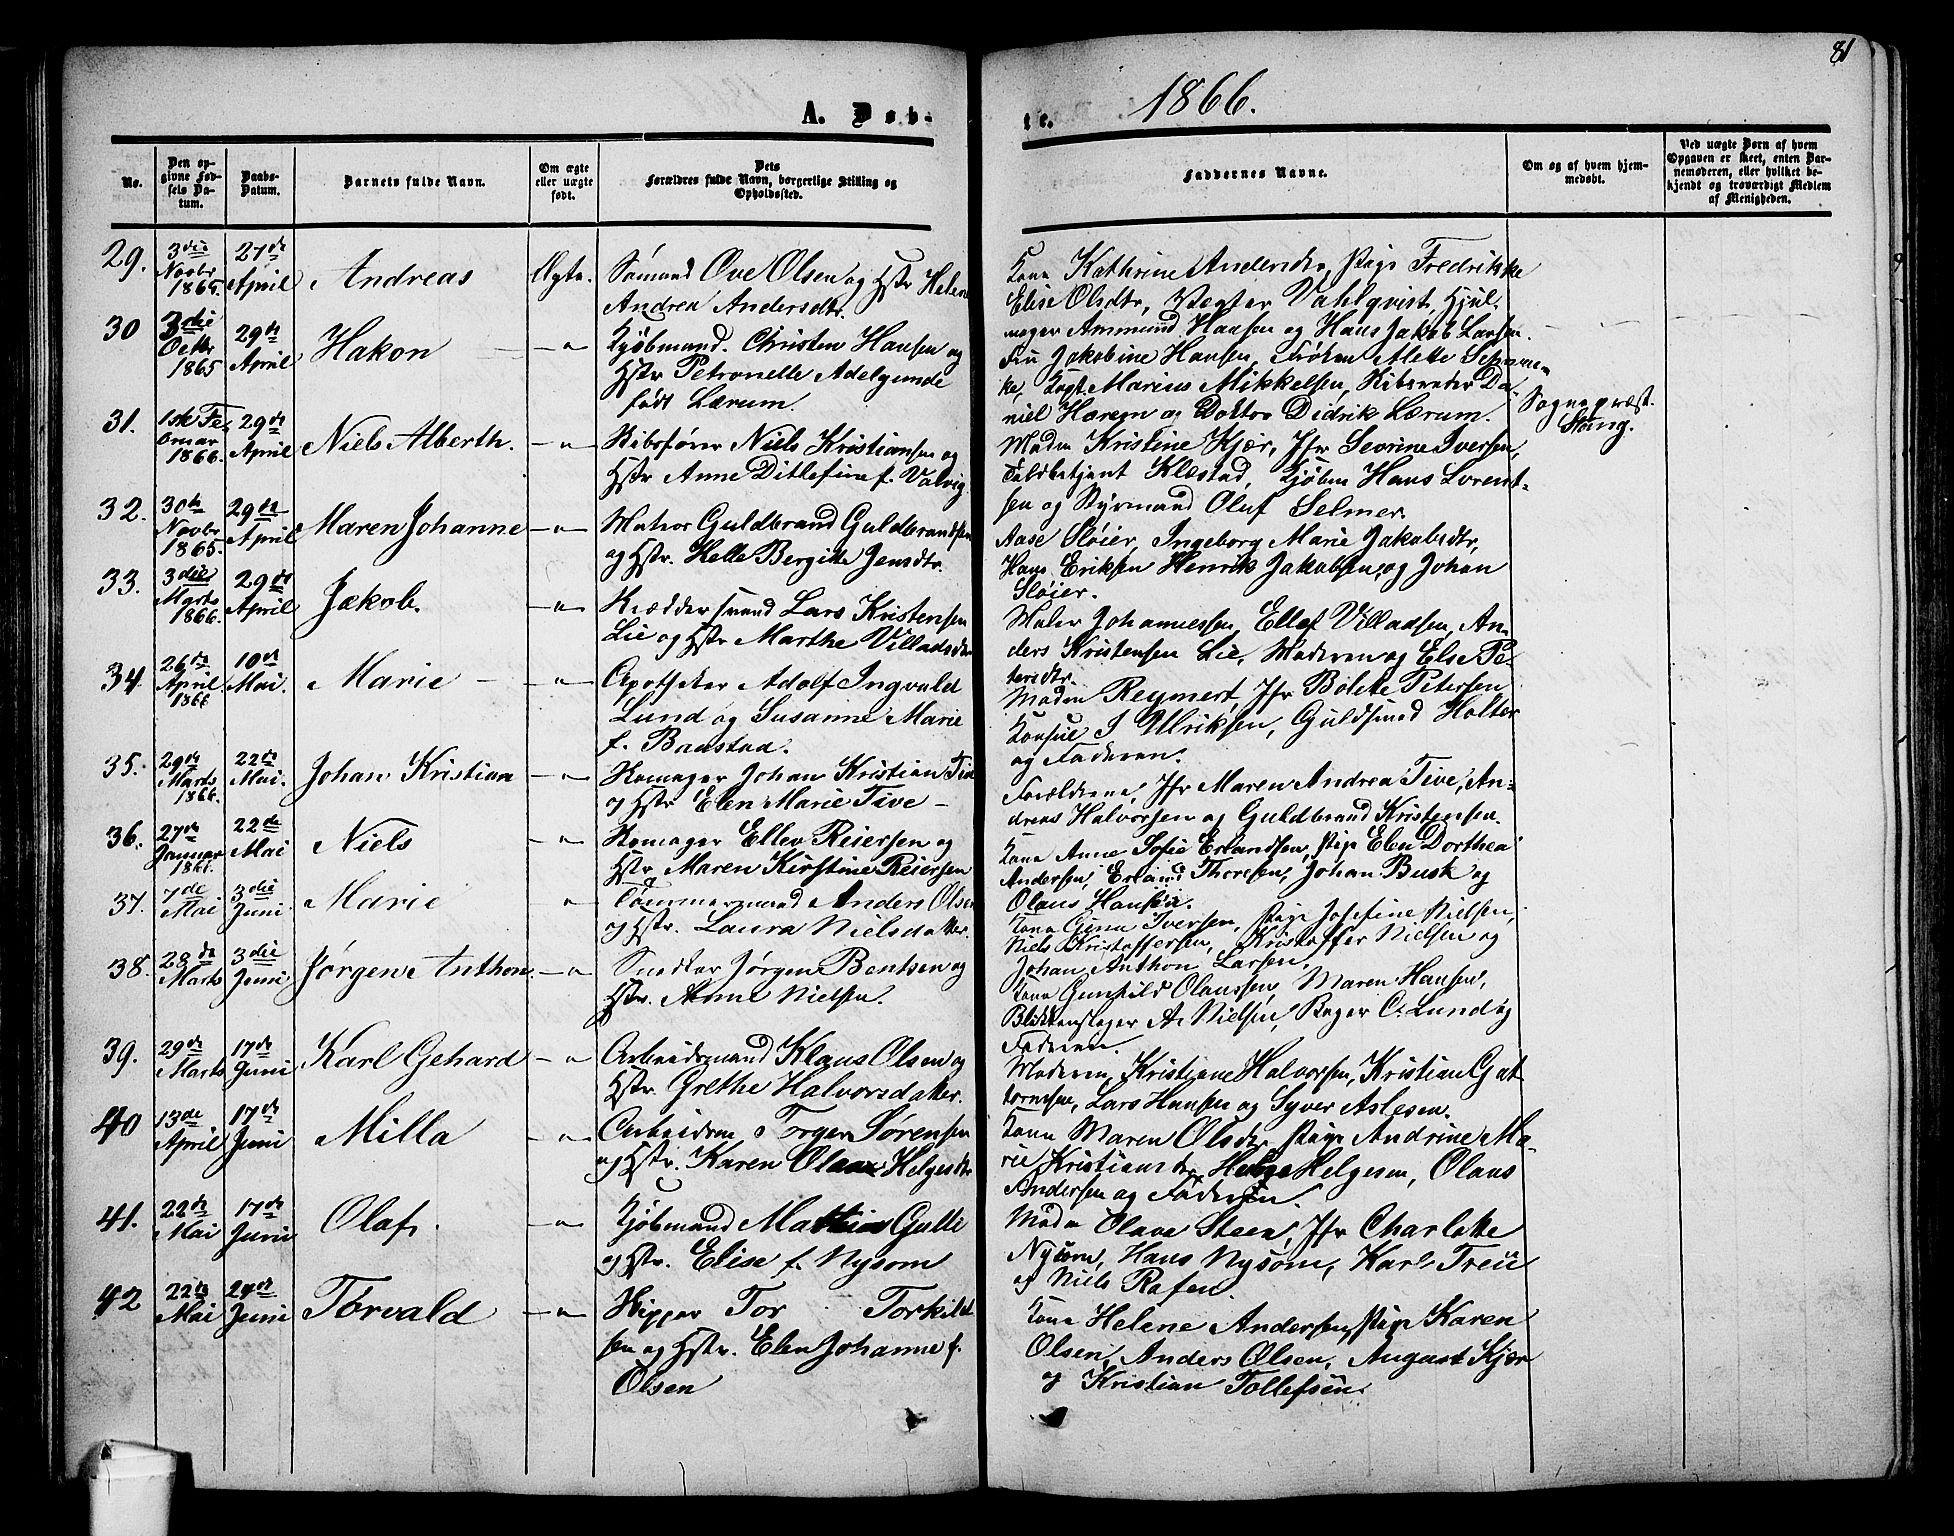 81
A. Døb-
te.
1866.
No.
Den op-
givne Fød-
sels Da-
tum.
Daabs-
Datum.
Barnets fulde Navn.
Om ægte
eller uægte
født.
Dets
Forældres fulde Navn, borgerlige Stilling og
Opholdssted.
Faddernes Navne.
Om og af hvem hjem-
medøbt.
Ved uægte Børn af hvem
Opgaven er skeet, enten Bar-
nemoderen, eller hvilket be-
kjendt og troværdigt Medlem
af Menigheden.
29.
3die
Novbr
1865.
27de
April
Andreas
Ægte.
Sømand Ove Olsen og Hstr Helene
Andrea Andersdtr.
Kone Kathrine Andersdtr, Pige Fredrikke
Elise Olsdtr, Vægter Vahlqvist, Hjul-
mager Ammund Hansen og Hans Jakob Larsen.
30
3die
Octbr
1865
29de
April
Hakon
— " —
Kjøbmand. Christen Hansen og
Hstr Petronelle Adelgunde
født Lærum.
Fru Jakobine Hansen, Frøken Mette
Kapt. Marius Mikkelsen, Skibsreder Da-
niel Haregn og Doktor Didrik Lærum.
Sognepræst
Stang.
31.
1ste Fe-
bruar
1866.
29de
April
Niels Alberth.
— " —
Skibsfører Niels Kristiansen og
Hstr Anne Ditlefine f. Valvig.
Madm Kristine Kjær, Jfr Sevrine Iversen,
Toldbetjent Klæstad, Kjøbm Hans Lorent-
sen og Styrmand Oluf Selmer.
32.
30te
Novbr
1865.
29de
April
Maren Johanne
— " —
Matros Guldbrand Guldbrandsen
og Hstr. Helle Bergitte Jensdtr.
Aase Sløier, Ingeborg Marie Jakobsdtr,
Hans Eriksen Henrik Jakobsen, og Johan
Sløier.
33.
3die
Marts
1866.
29de
April
Jakob.
— " —
Skræddersvend Lars Kristensen
Lie og Hstr Marthe Villadsdtr
Maler Johannessen, Ellef Villadsen, An-
ders Kristensen Lie, Moderen og Else Pe-
tersdtr.
34.
26de
April
1866
10de
Mai.
Marie
— " —
Apotheker Adolf Ingvald
Lund og Susanne Marie
f. Baastad.
Madm Reymert, Jfr Bolette Petersen
Konsul J Ulriksen, Guldsmed Holter
og Faderen.
35.
29de
Marts
1866.
22de
Mai.
Johan Kristian
— " —
Skomager Johan Kristian Tive
og Hstr Elen Marie Tive —
Forældrene, Jfr Maren Andrea Tive, An-
dreas Halvorsen og Guldbrand Kristensen.
36.
27de
Januar
1866.
22de
Mai
Niels
— " —
Skomager Ellev Reiersen og
Hstr. Maren Kirstine Reiersen
Kone Anne Sofie Erlandsen, Pige Elen Dorthea
Andersen, Erland Thoresen, Johan Busk og
Olaus Hansen.
37.
7de
Mai
3die
Juni.
Marie
"
Tømmermand Anders Olsen
og Hstr. Laura Nielsdatter.
Kone Gunu Iversen, Pige Josefine Nielsen,
Niels Kristoffersen, Kristoffer Nielsen og
Johan Anthon Larsen.
38.
28de
Marts
3die
Juni
Jørgen Anthon.
— " —
Snedker Jørgen Bentsen og
Hstr. Anne Nielsen.
Kone Gunhild Olaussen, Maren Hansen,
Blikkenslager A. Nielsen, Bager C. Lund og
Faderen.
39.
29de
Marts
17de
Juni
Karl Gehard
— " —
Arbeidsmand Klaus Olsen og
Hstr. Grethe Halvorsdatter.
Moderen, Kristiane Halvorsen, Kristian Gut-
tormsen, Lars Hansen og Syver Aslesen.
40
13de
April
17de
Juni
Milla
— " —
Arbeidsm Torger Sørensen
og Hstr. Karen Olava Helgesdtr
Kone Maren Olsdtr Pige Andrine Ma-
rie Kristiansdtr, Helge Helgesen, Olaus
Andersen og Faderen.
41.
22de
Mai
17de
Juni
Olaf.
— " —
Kjøbmand Mathias Gulli
og Hstr. Elise f. Nysom
Madm Olava Steen, Jfr Charlotte
Nysom, Hans Nysom, Karl Treu
og Niels Rafen.
42
22de
Mai
24de
Juni
Torvald
— " —
Skipper Tor Torkild-
sen og Hstr. Elen Johanne f.
Olsen
Kone Helene Andersen, Pige Karen
Olsen, Anders Olsen, August Kjær
og Kristian Tollefsen.